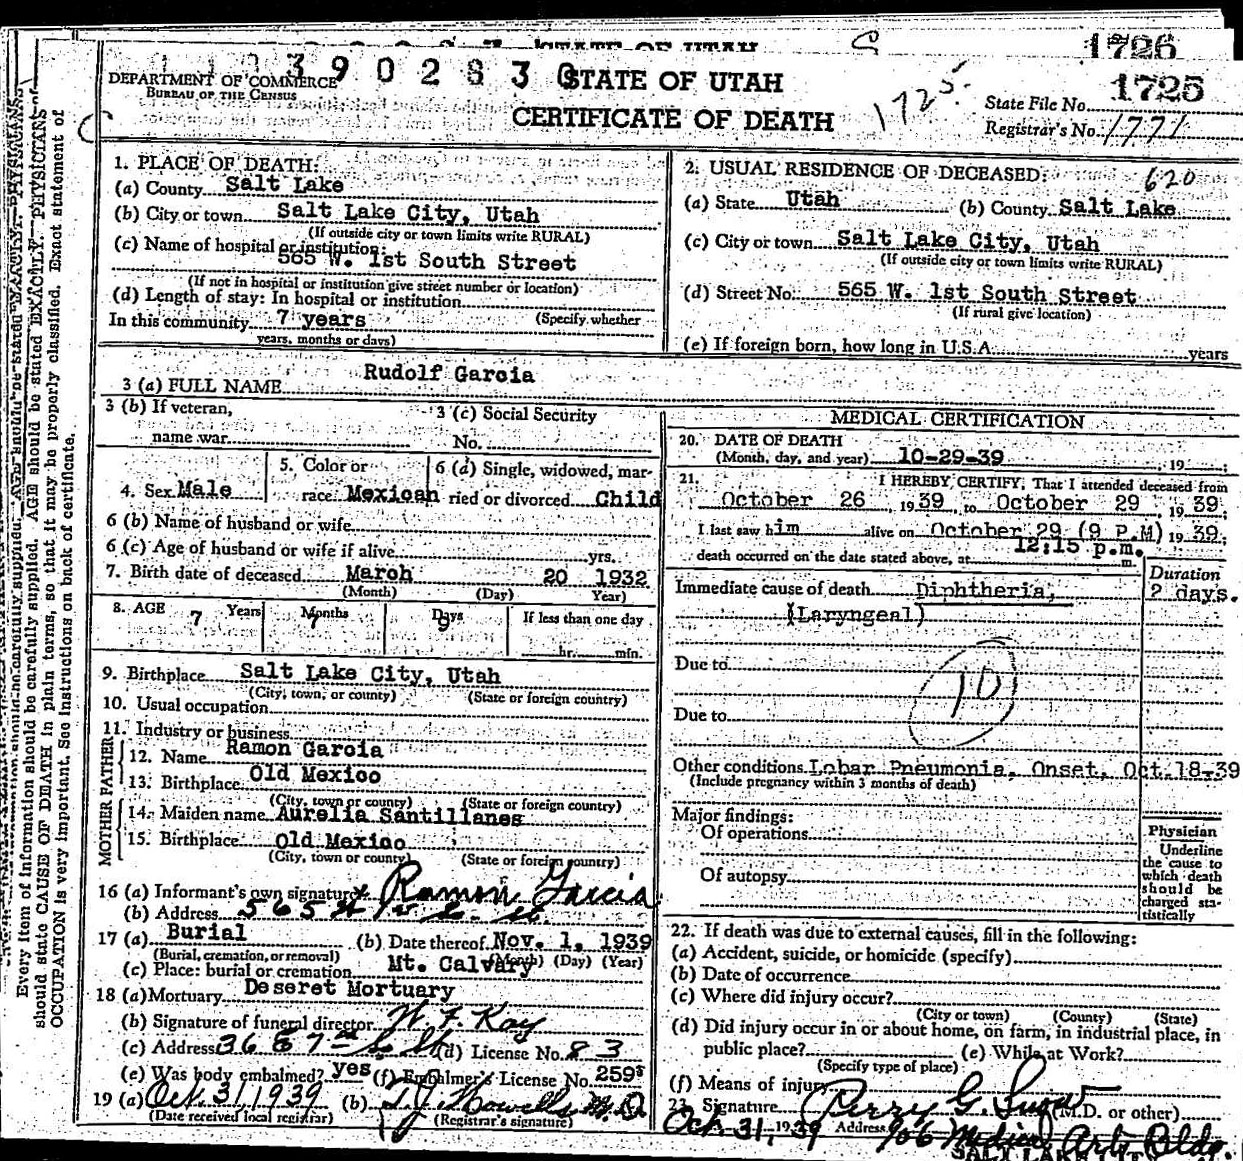 STATE OF UTAH
1726
DEPARTMENT OF COMMERCE
BUREAU OF THE CENSUS
STATE OF UTAH
CERTIFICATE OF DEATH
1725
State File No. 1725
Registrar's No. 1771
1. PLACE OF DEATH:
(a) County Salt Lake
(b) City or town Salt Lake City, Utah
(If outside city or town limits write RURAL)
(c) Name of hospital or institution:
565 W. 1st South Street
(If not in hospital or institution give street number or location)
(d) Length of stay: In hospital or institution
In this community 7 years (Specify whether
years, months or days)
2. USUAL RESIDENCE OF DECEASED: 620
(a) State Utah (b) County Salt Lake
(c) City or town Salt Lake City, Utah
(If outside city or town limits write RURAL)
(d) Street No. 565 W. 1st South Street
(If rural give location)
(e) If foreign born, how long in U.S.A. years
3 (a) FULL NAME Rudolf Garcia
3 (b) If veteran, name war
3 (c) Social Security No.
4. Sex Male
5. Color or race Mexican
6 (a) Single, widowed, married or divorced Child
6 (b) Name of husband or wife
6 (c) Age of husband or wife if alive yrs.
7. Birth date of deceased March 20 1932
(Month) (Day) Year)
8. AGE 7 Years 7 Months 9 Days If less than one day
hr. min.
9. Birthplace Salt Lake City, Utah
(City, town, or county) (State or foreign country)
10. Usual occupation
11. Industry or business
FATHER
12. Name Ramon Garcia
13. Birthplace Old Mexico
(City, town or county) (State or foreign country)
MOTHER
14. Maiden name Aurelia Santillanes
15. Birthplace Old Mexico
(City, town or county) (State or foreign country)
16 (a) Informant's own signature x Ramon Garcia
(b) Address 565
17 (a) Burial (b) Date thereof Nov. 1, 1939
(Burial, cremation, or removal) (Month) (Day) (Year)
(c) Place: burial or cremation Mt. Calvary
18 (a) Mortuary Deseret Mortuary
(b) Signature of funeral director W. F. Kay
(c) Address (d) License No. 83
(e) Was body embalmed? yes (f) Embalmer's License No. 259
19 (a) Oct. 31, 1939 (b) T.J. Howells M.D.
(Date received local registrar) (Registrar's signature)
MEDICAL CERTIFICATION
20. DATE OF DEATH
(Month, day, and year) 10-29-39, 19 ;
21. I HEREBY CERTIFY, That I attended deceased from
October 26 1939 to October 29 1939;
I last saw him alive on October 29 (9 P.M) 1939;
death occurred on the date stated above, at 12:15 p.m. m.
Duration
Immediate cause of death Diphtheria, 2 days.
(Laryngeal)
Due to
10
Due to
Other conditions Lobar Pneumonia, Onset, Oct. 18-39
(Include pregnancy within 3 months of death)
Major findings:
Of operations
Of autopsy
Physician
Underline the cause to which death should be charged statistically
22. If death was due to external causes, fill in the following:
(a) Accident, suicide, or homicide (specify)
(b) Date of occurrence
(c) Where did injury occur?
(City or town) (County) (State)
(d) Did injury occur in or about home, on farm, in industrial place, in
public place? (e) While at Work?
(Specify type of place)
(f) Means of injury
23. Signature Perry G. Snow (M.D. or other)
Oct. 31, 1939 Address 906 Medical Arts Bldg.
Every item of information should be carefully supplied. AGE should be stated EXACTLY. PHYSICIANS
should state CAUSE OF DEATH in plain terms, so that it may be properly classified. Exact statement of
OCCUPATION is very important. See instructions on back of certificate.